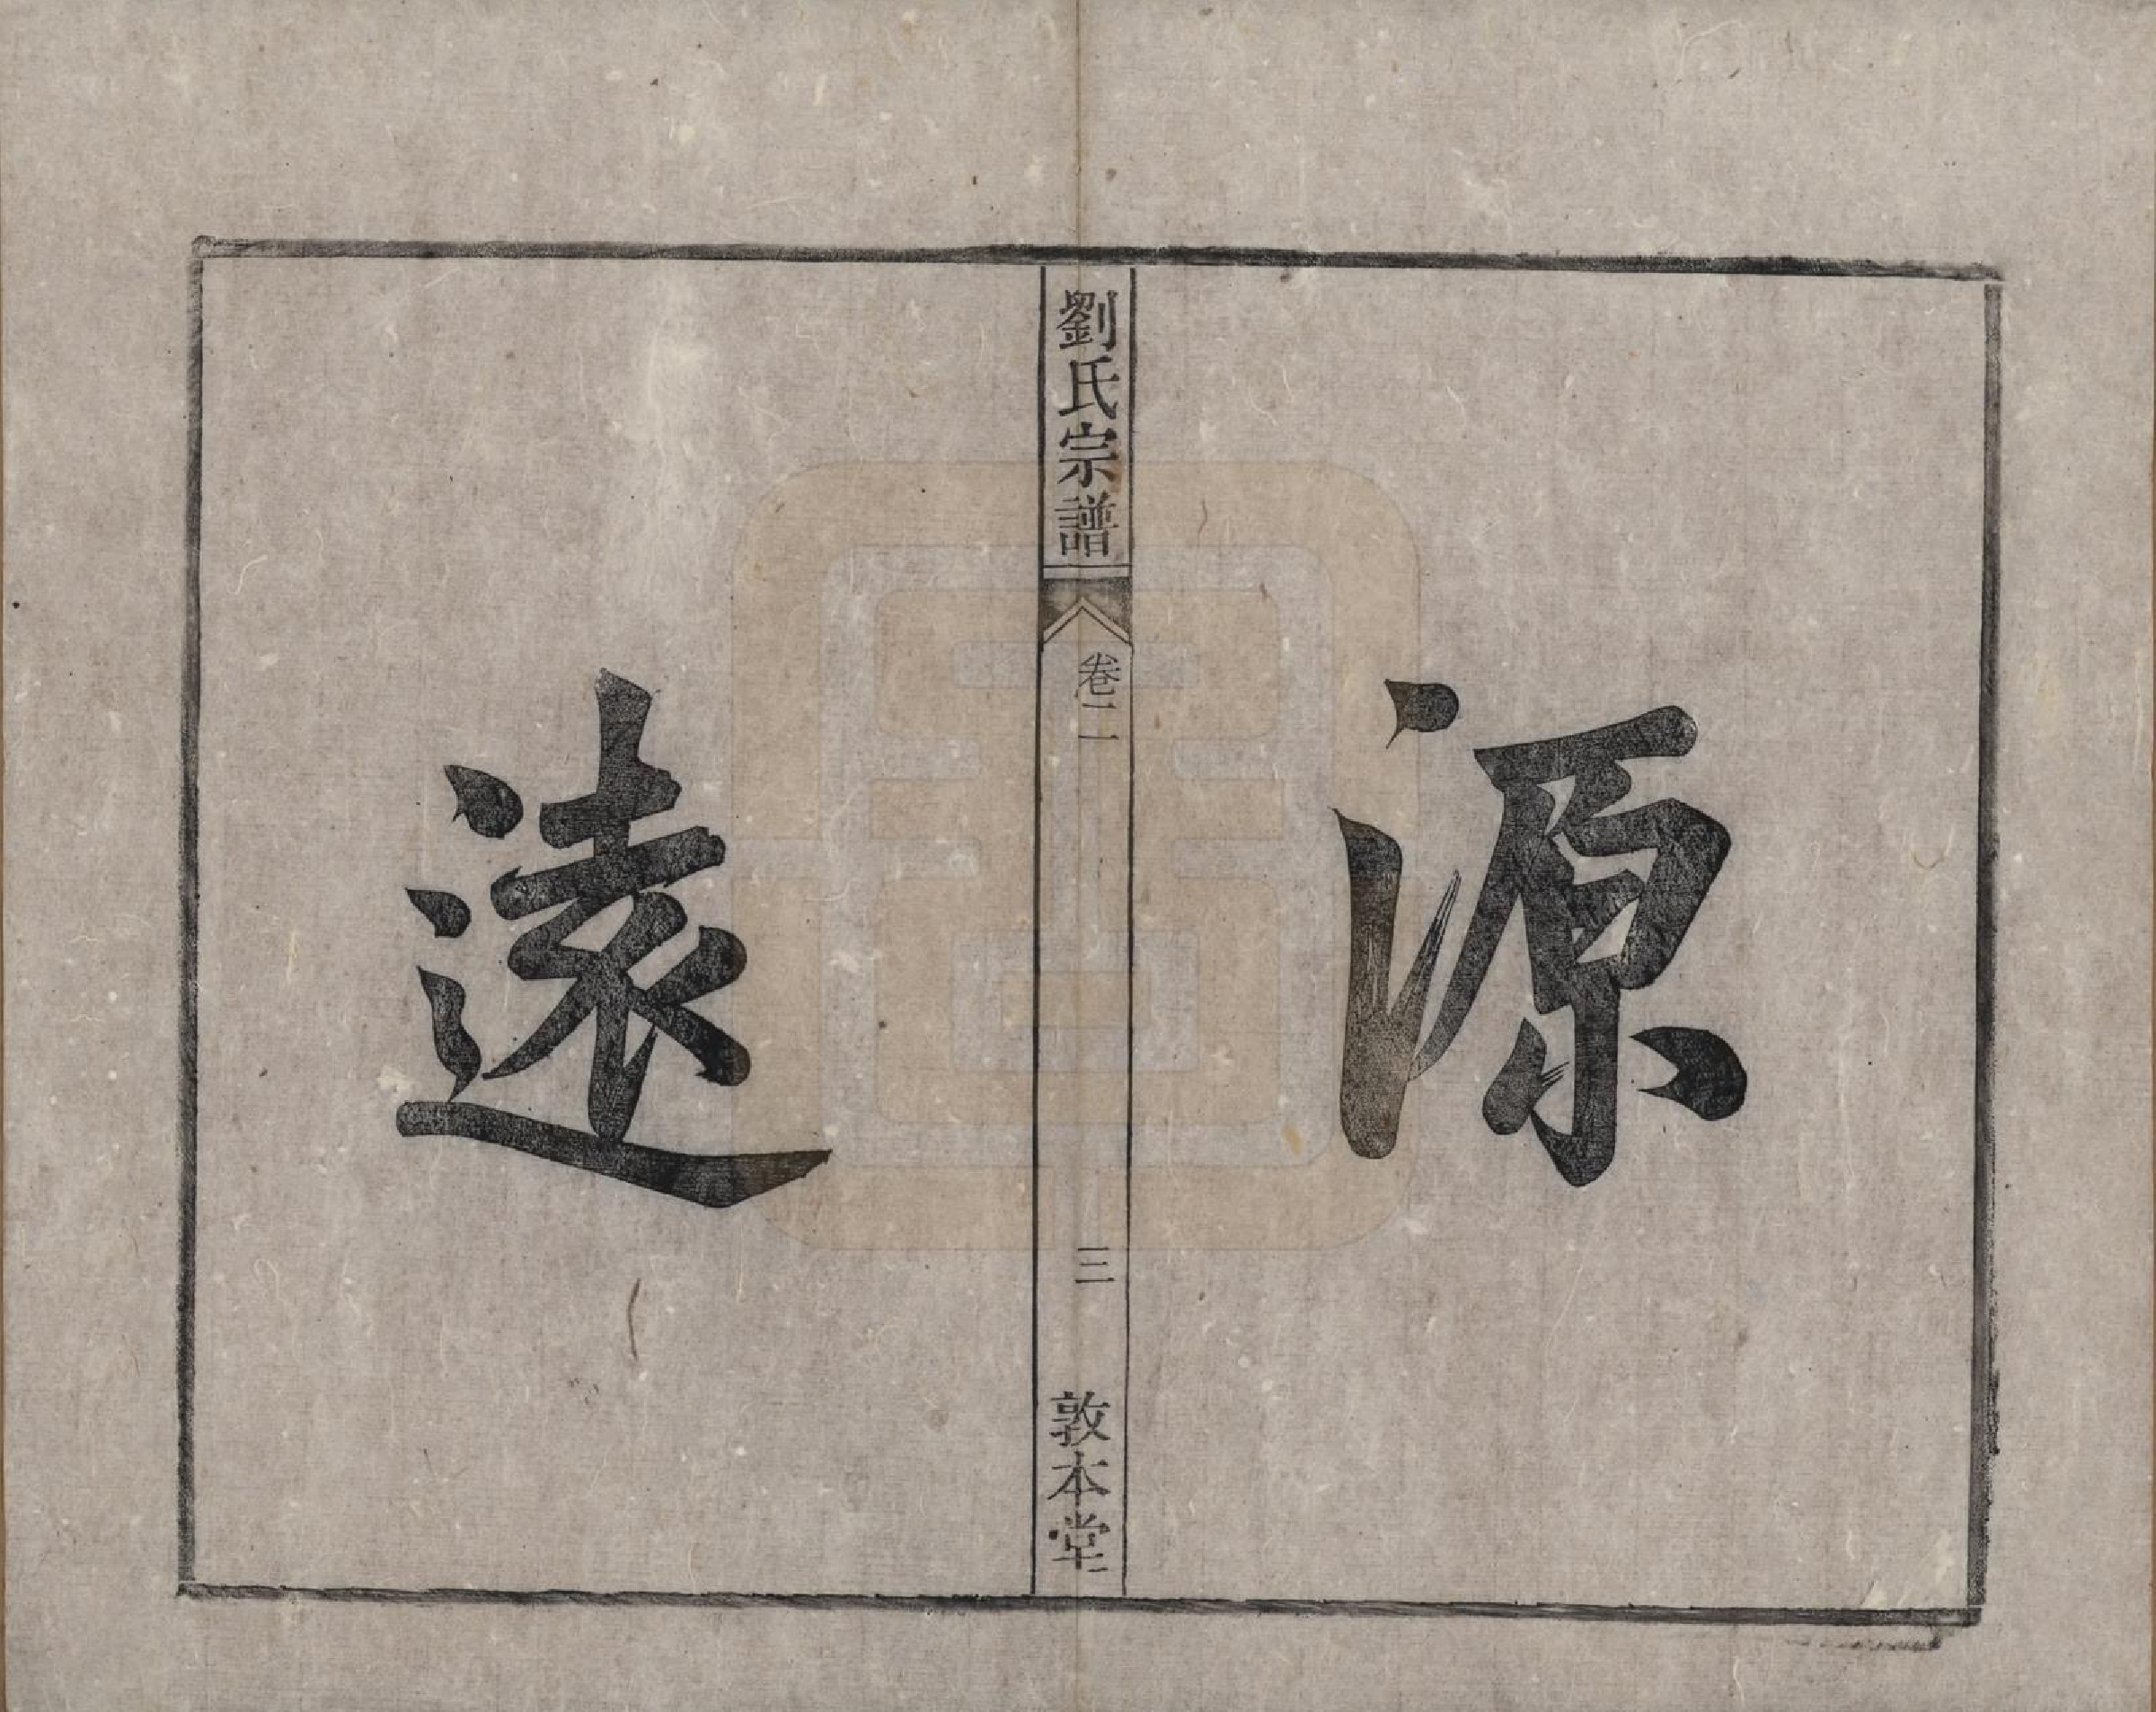 源
劉氏宗譜
卷二
三
敦本堂
遠